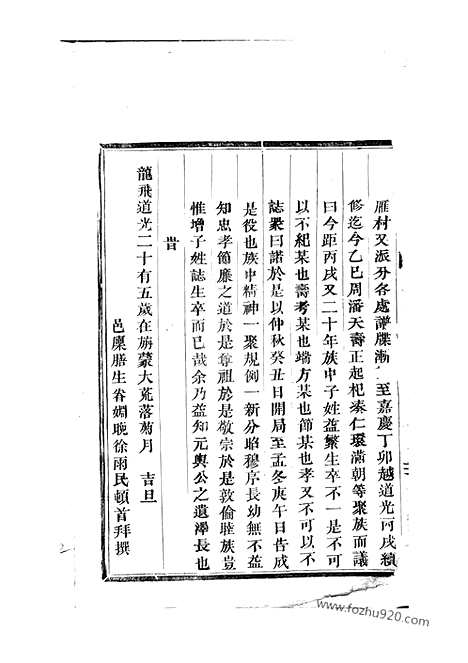 雁村又派分各處譜牒漸
至嘉慶丁卯越道光丙戌續
修迄今乙巳周潘天壽正起杞秦仁環滿朝等聚族而議
曰今距丙戌又二十年族中子姓益繁生卒不一是不可
以不紀某也壽考某也端方某也節某也孝又不可以不
誌衆曰諾於是以仲秋癸丑日開局至孟冬庚午日告成
是役也族中精神一聚規例一新分昭穆序長幼無不益
知忠孝節廉之道於是尊祖於是敬宗於是敦倫睦族豈
惟增子姓誌生卒而已哉余乃益知元與公之遺澤長也
旹
龍飛道光二十有五歲在旃蒙大荒落菊月 吉旦
邑廩膳生眷姻晚徐雨民頓首拜撰
www.fozhu920.com